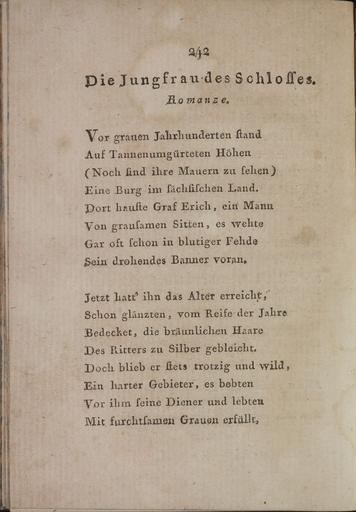 242
Die Jungfrau des Schloſſes.
Romanze.
Vor grauen Jahrhunderten ſtand
Auf Tannenumgürteten Höhen
(Noch ſind ihre Mauern zu ſehen)
Eine Burg im ſächſiſchen Land.
Dort hauſte Graf Erich, ein Mann
Von grauſamen Sitten, es wehte
Gar oft ſchon in blutiger Fehde
Sein drohendes Banner voran.
Jetzt hatt' ihn das Alter erreicht,
Schon glänzten, vom Reife der Jahre
Bedecket, die bräunlichen Haare
Des Ritters zu Silber gebleicht.
Doch blieb er ſtets trotzig und wild,
Ein harter Gebieter, es bebten
Vor ihm ſeine Diener und lebten
Mit furchtſamen Grauen erfüllt,